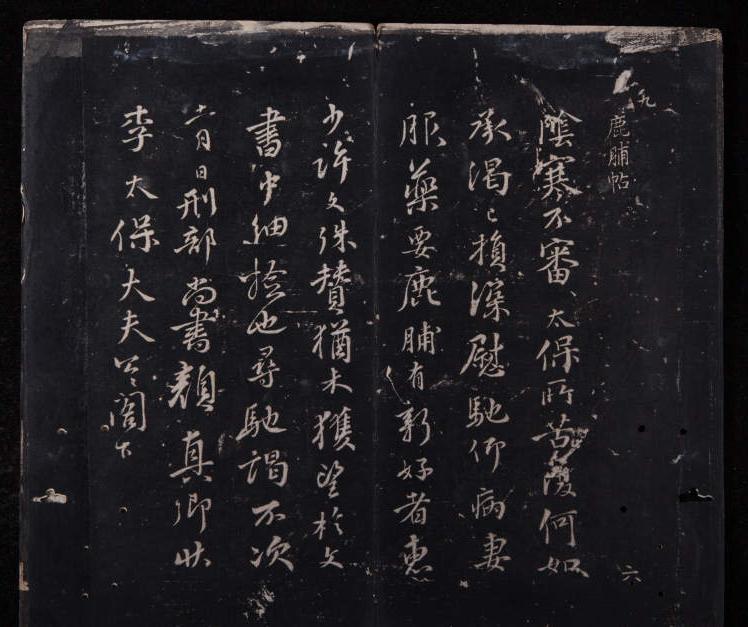 九 鹿脯帖
六
陰寒不審太保所苦復何如
承渴已損深慰馳仰病妻
服藥要鹿脯有新好者惠
少許文殊贊猶未獲望於文
書中細撿也尋馳謁不次
十一月日刑部尚書顏真卿狀
李太保大夫公閤下